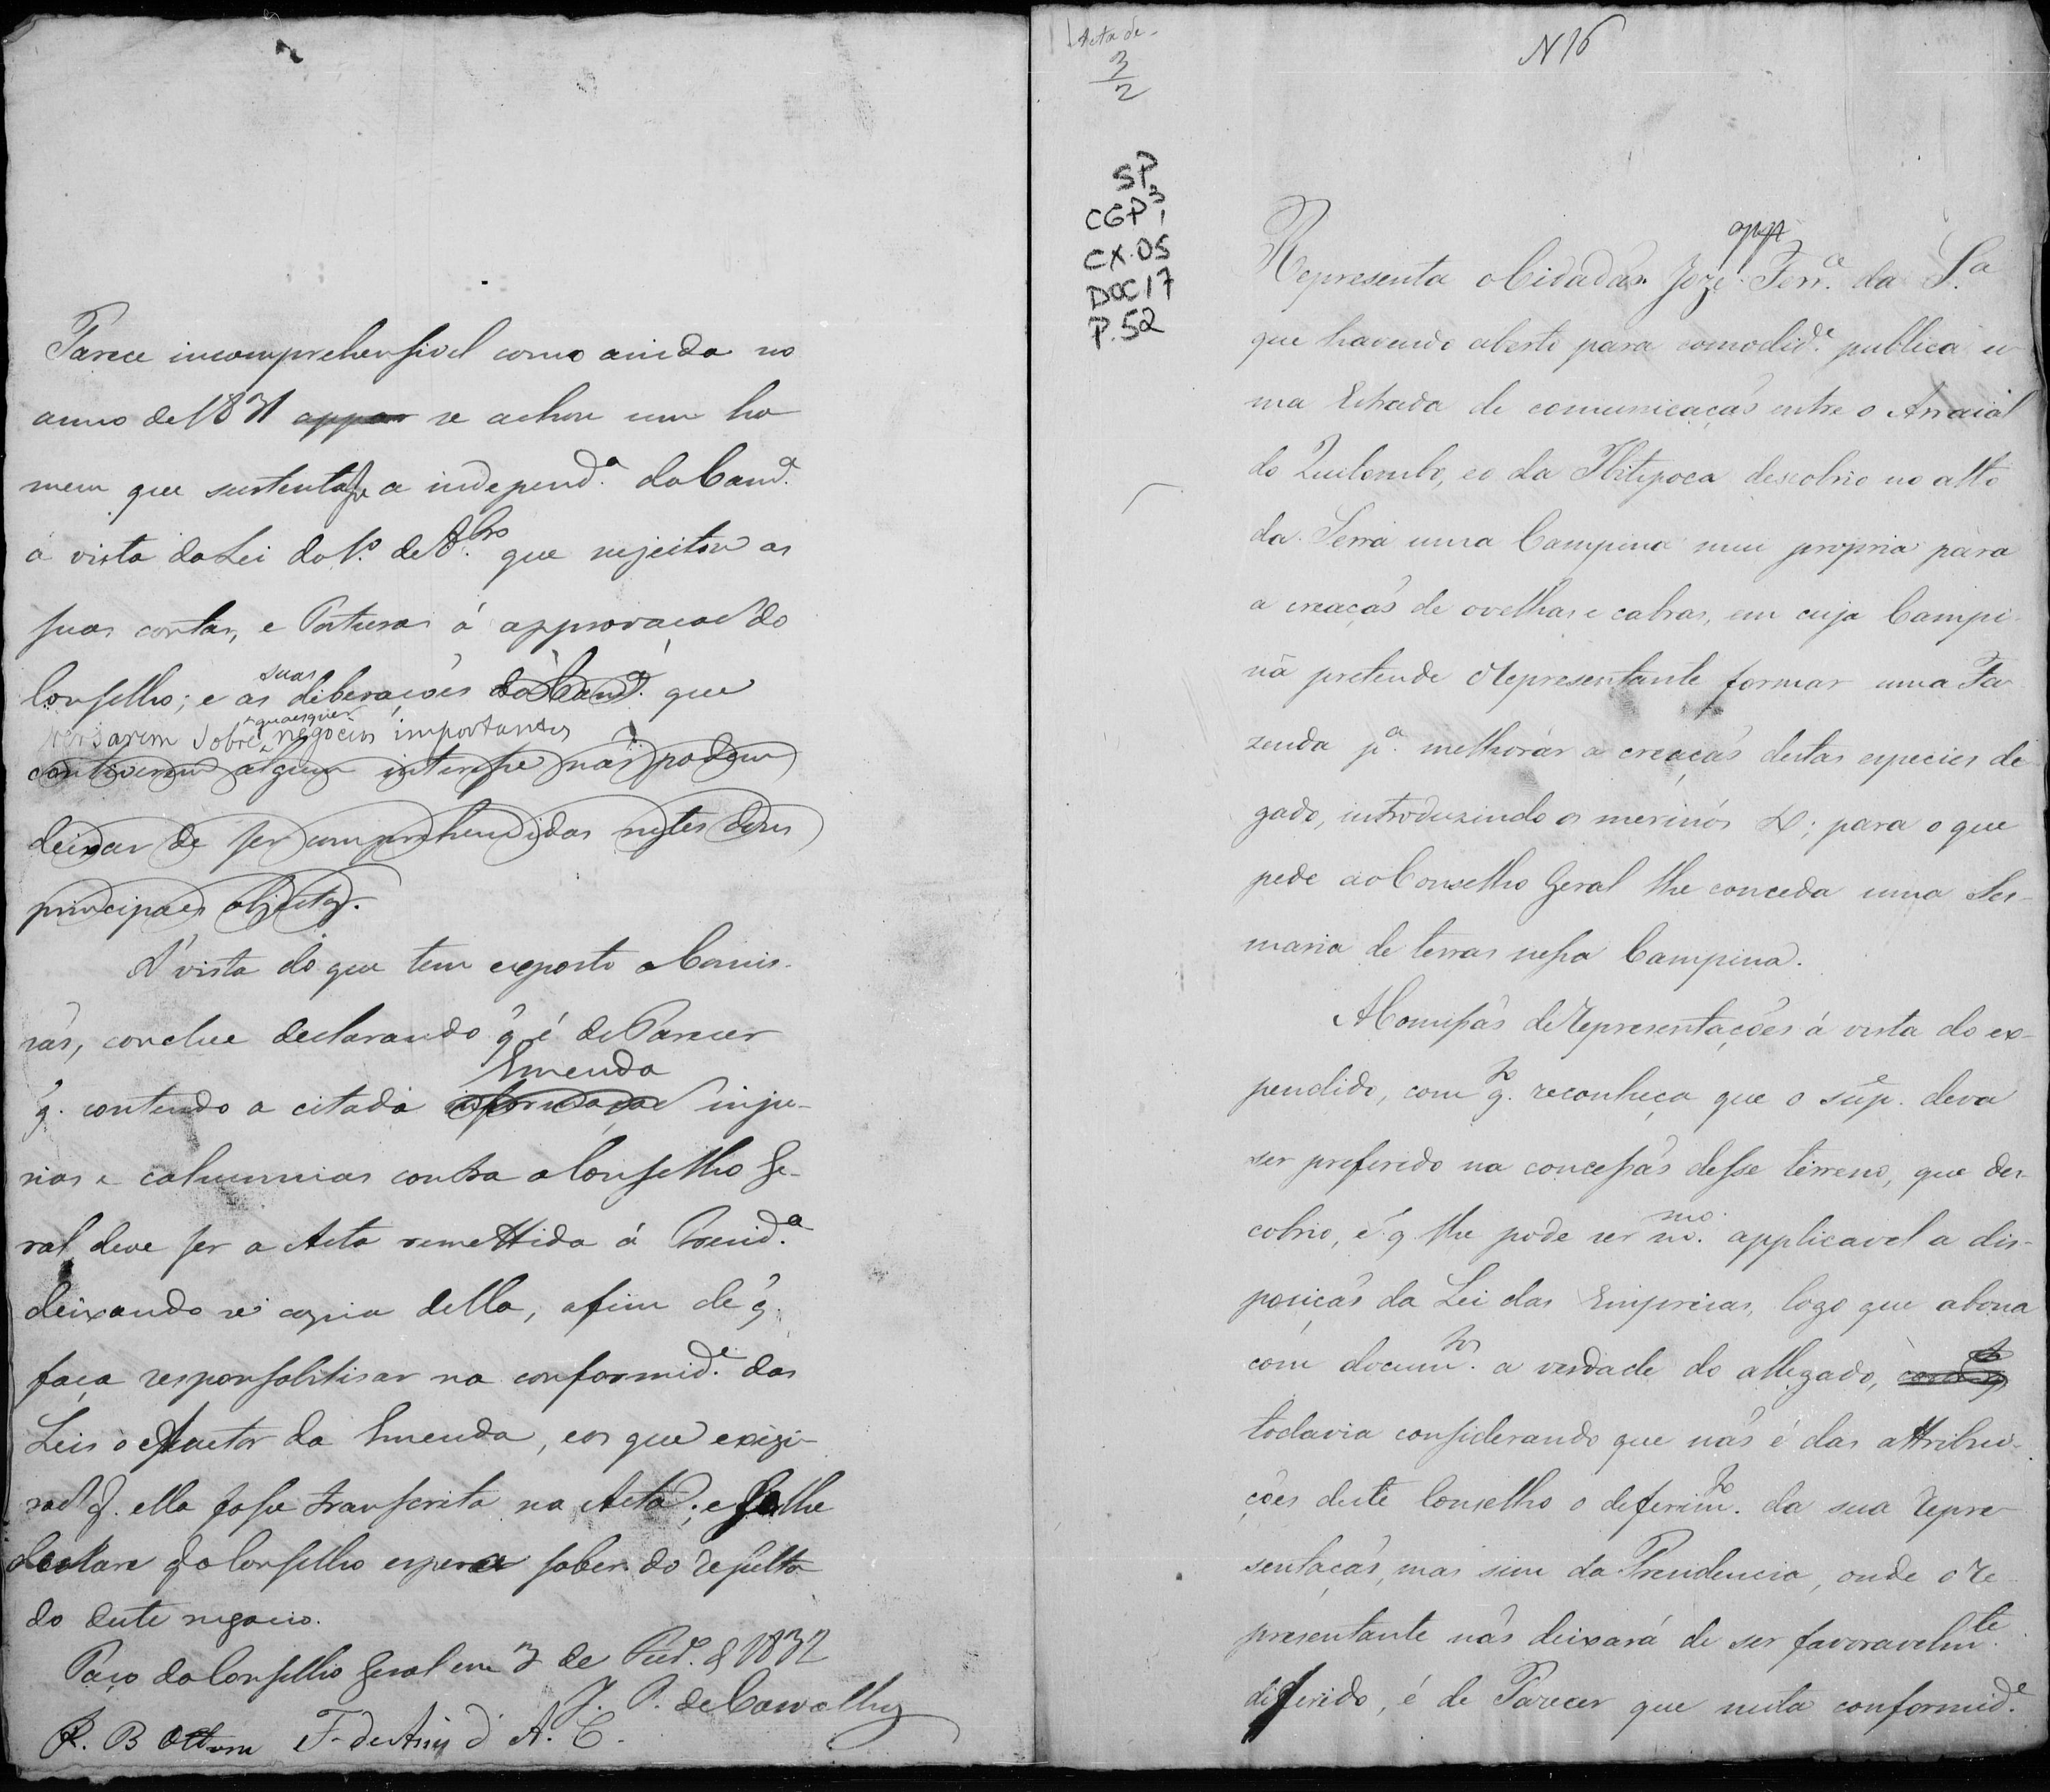 Parece incomprehensivel como ainda no
anno de 1831 appar se achou um ho
mem que sustentasse a independ.a da Cam.a
á vista da Lei do 1.o de 8.bro que sujeitou as
suas contas, e Posturas á approvação do
Conselho; e as suas diberações da Cam.a que
versarem sobre quaesquer negocios importantes
contiverem algum interesse não podem
deixar de ser comprehendidas nestes dous
principaes objectos.
Á vista do que tem exposto a Comis-
são, conclue declarando q é de Parecer
Emenda
q. contendo a citada informação inju-
rias e calumnias contra o Conselho Ge-
ral, deve ser a Acta remettida á Presid.a
deixando se copia della, afim de q.
faça responsabilisar na conformid.e das
Leis o Auctor da Emenda, e os que exigi-
rão q. ella fosse transcrita na Acta; e se lhe
declare q o Conselho espera saber do resulta-
do deste negocio.
Paço do Conselho Geral em 3 de Fev.o d 1832
J. P. de Carvalho
R. B Ottoni F. de Assis d' A. C.
Acta de
3
2
N 16
SP
CGP 3,1
CX.05
DOC17
P.52
app
Representa o Cidadão Joze Ferr.a da S.a
que havendo aberto para comodid.e publica u
ma Estrada de comunicação entre o Arraial
do Quilombo, e o da Ibitipoca descobrio no alto
da Serra uma Campina mui propria para
a creação de ovelhas e cabras, em cuja Campi-
na pretende o Representante formar uma Fa
zenda p.a melhorar a creação destas especies de
gado, introduzindo os merinós &; para o que
pede ao Conselho Geral lhe conceda uma Ses-
maria de terras nessa Campina.
A Comissão de Representações á vista do ex-
pendido, com q.to reconheça que o sup.e deva
ser preferido na concessão desse terreno, que des-
cobrio, e q lhe pode ser m.mo applicavel a dis-
posição da Lei das Emprezas, logo que abona
com docum.tos a verdade do allegado,
todavia considerando que não é das attribui-
ções deste Conselho o deferim.to da sua repre-
sentação, mas sim da Presidencia, onde o Re-
presentante não deixará de ser favoravelm.te
diferido, é de Parecer que nesta conformid.e